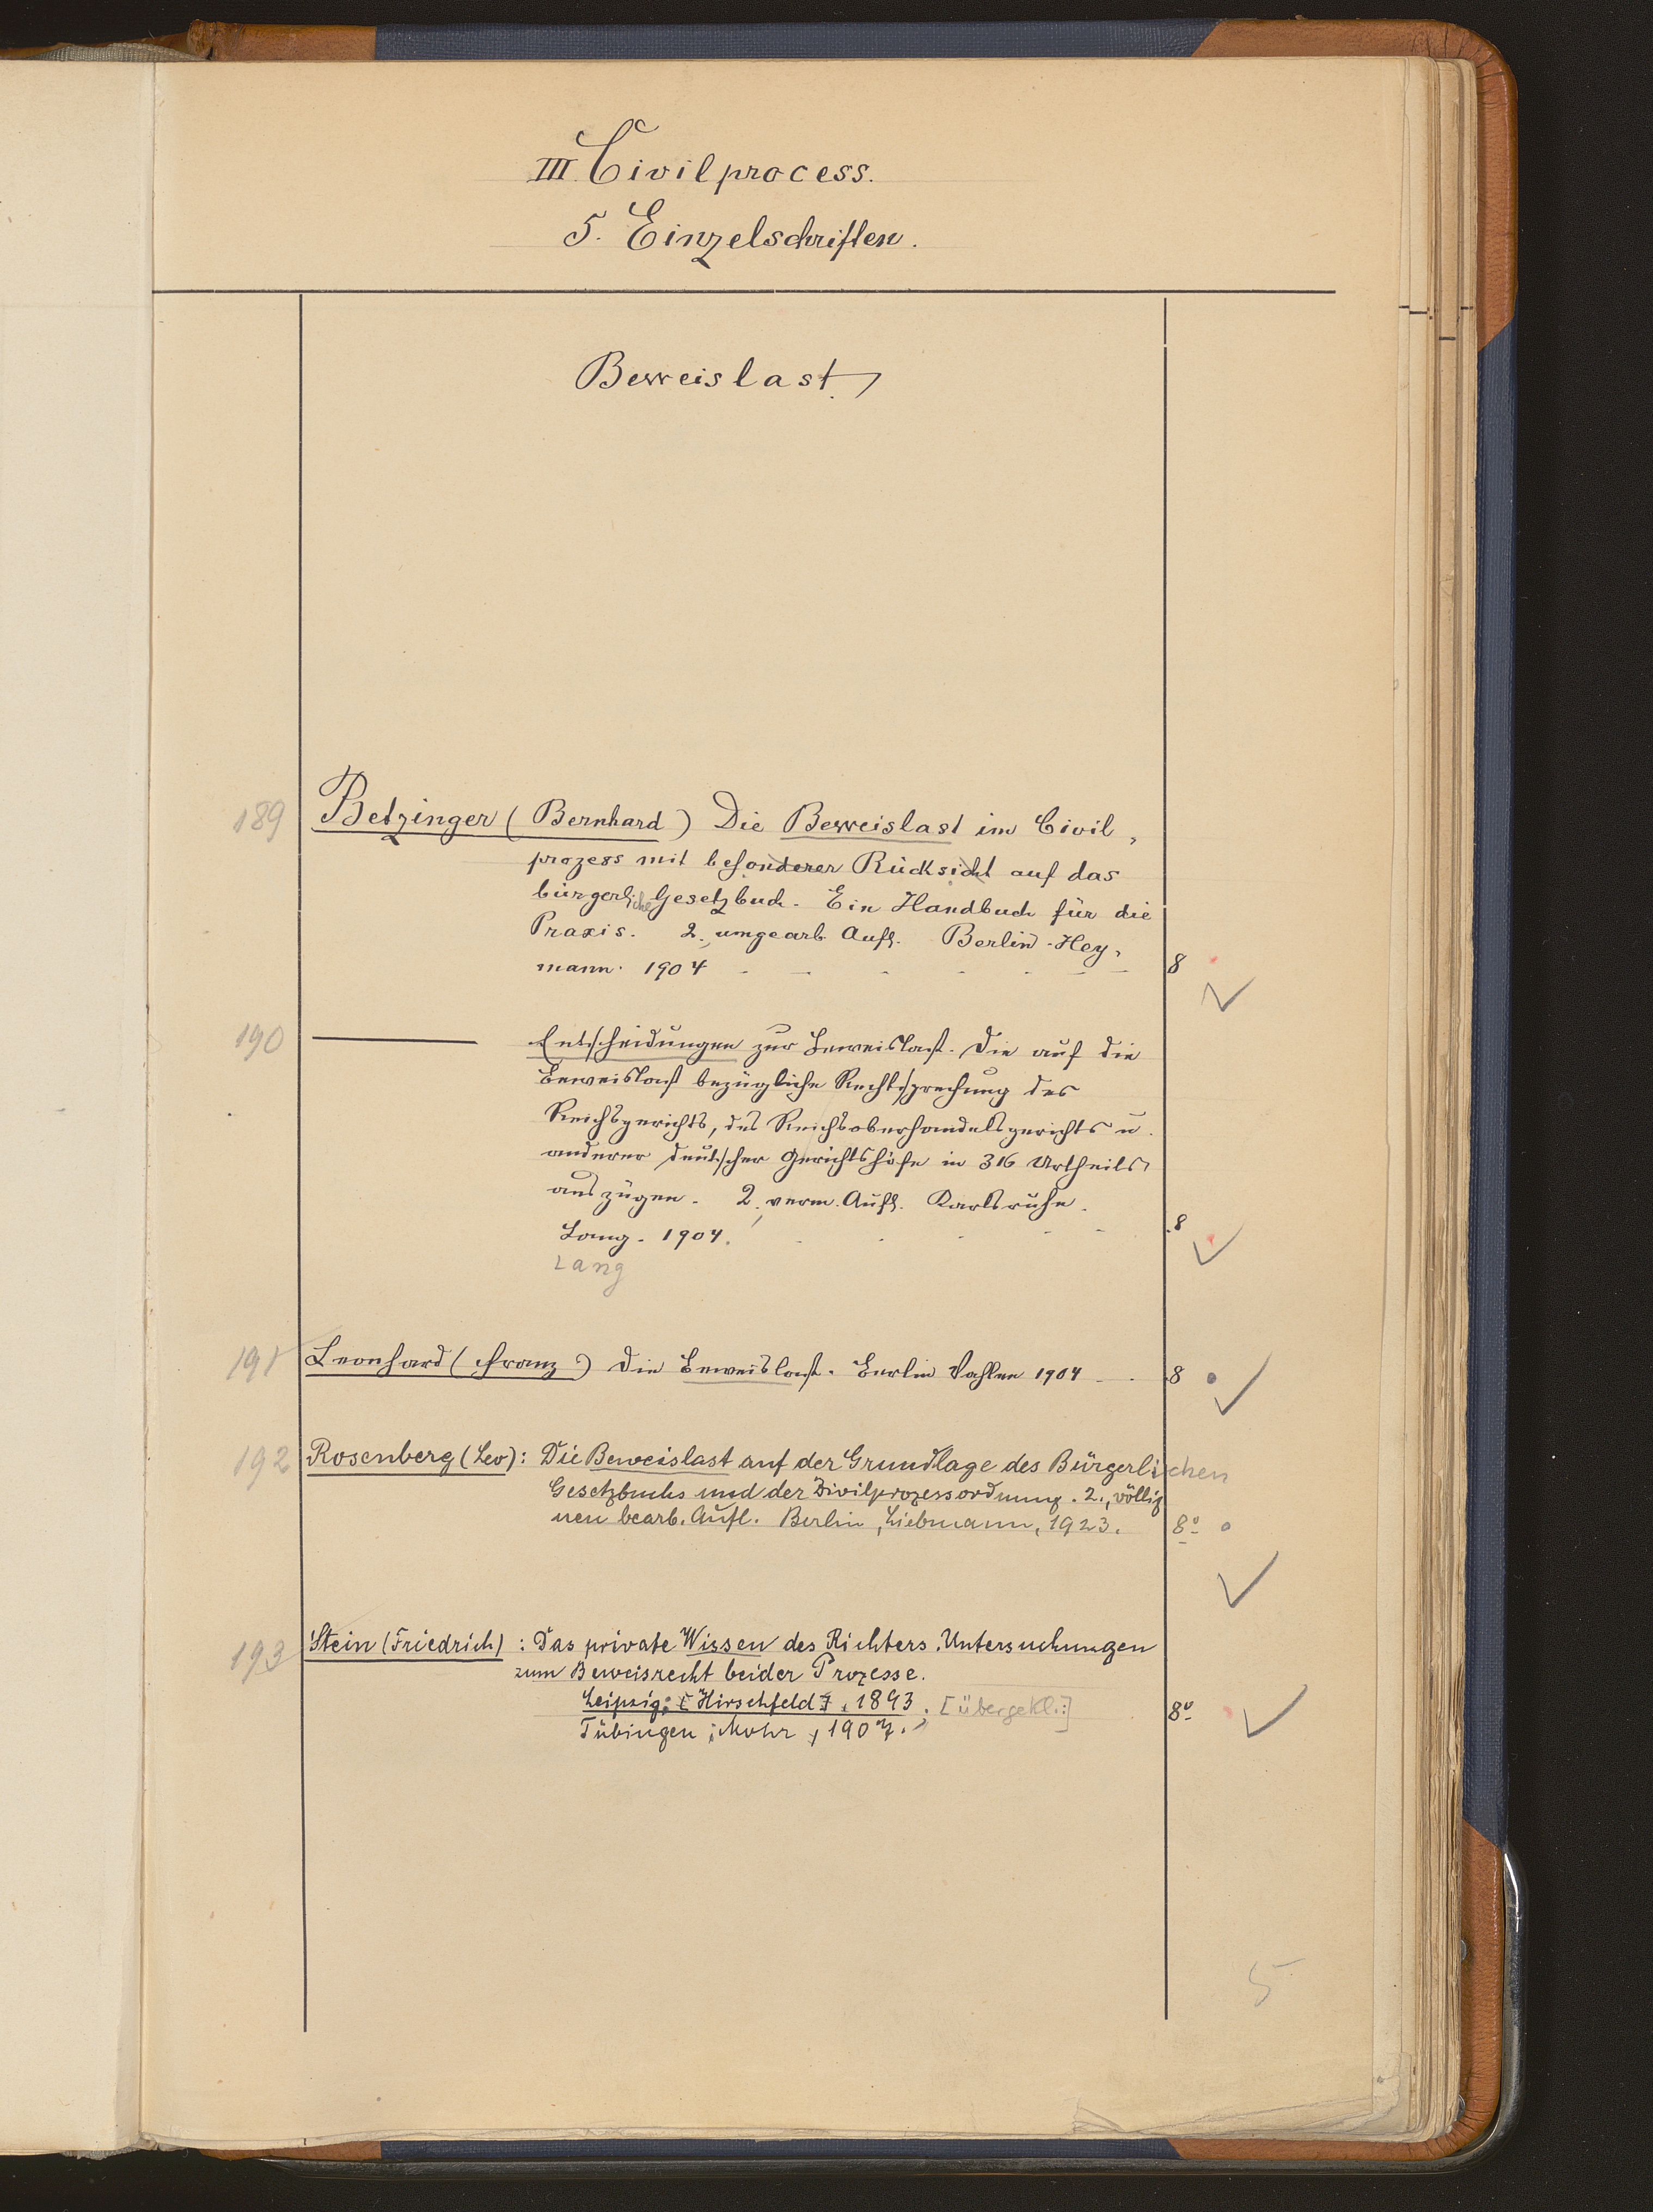 III. Civilprocess.
5. Einzelschriften.
Beweislast.
189 Betzinger (Bernhard) Die Beweislast im Civil-
prozess mit besonderer Rücksicht auf das
bürgerliche Gesetzbuch. Ein Handbuch für die
Praxis. 2., umgearb. Aufl. Berlin. Hey-
mann. 1904 8
190 — Entscheidungen zur Beweislast. Die auf die
Beweislast bezügliche Rechtsprechung des
Reichsgerichts, des Reichsoberhandelsgerichts u.
anderer deutscher Gerichtshöfe in 316 Urtheils-
auszügen. 2., verm. Aufl. Karlsruhe.
Lang. 1904. 8
Lang
191 Leonhard (Franz) Die Beweislast. Berlin Vahlen 1904 8
192 Rosenberg (Leo): Die Beweislast auf der Grundlage des Bürgerlichen
Gesetzbuchs und der Zivilprozessordnung. 2., völlig
neu bearb. Aufl. Berlin, Liebmann, 1923. 8°
193 Stein (Friedrich): Das private Wissen des Richters. Untersuchungen
zum Beweisrecht beider Prozesse.
Leipzig: [Hirschfeld], 1893. [übergekl.:] 8°
Tübingen: Mohr, 1907.
5